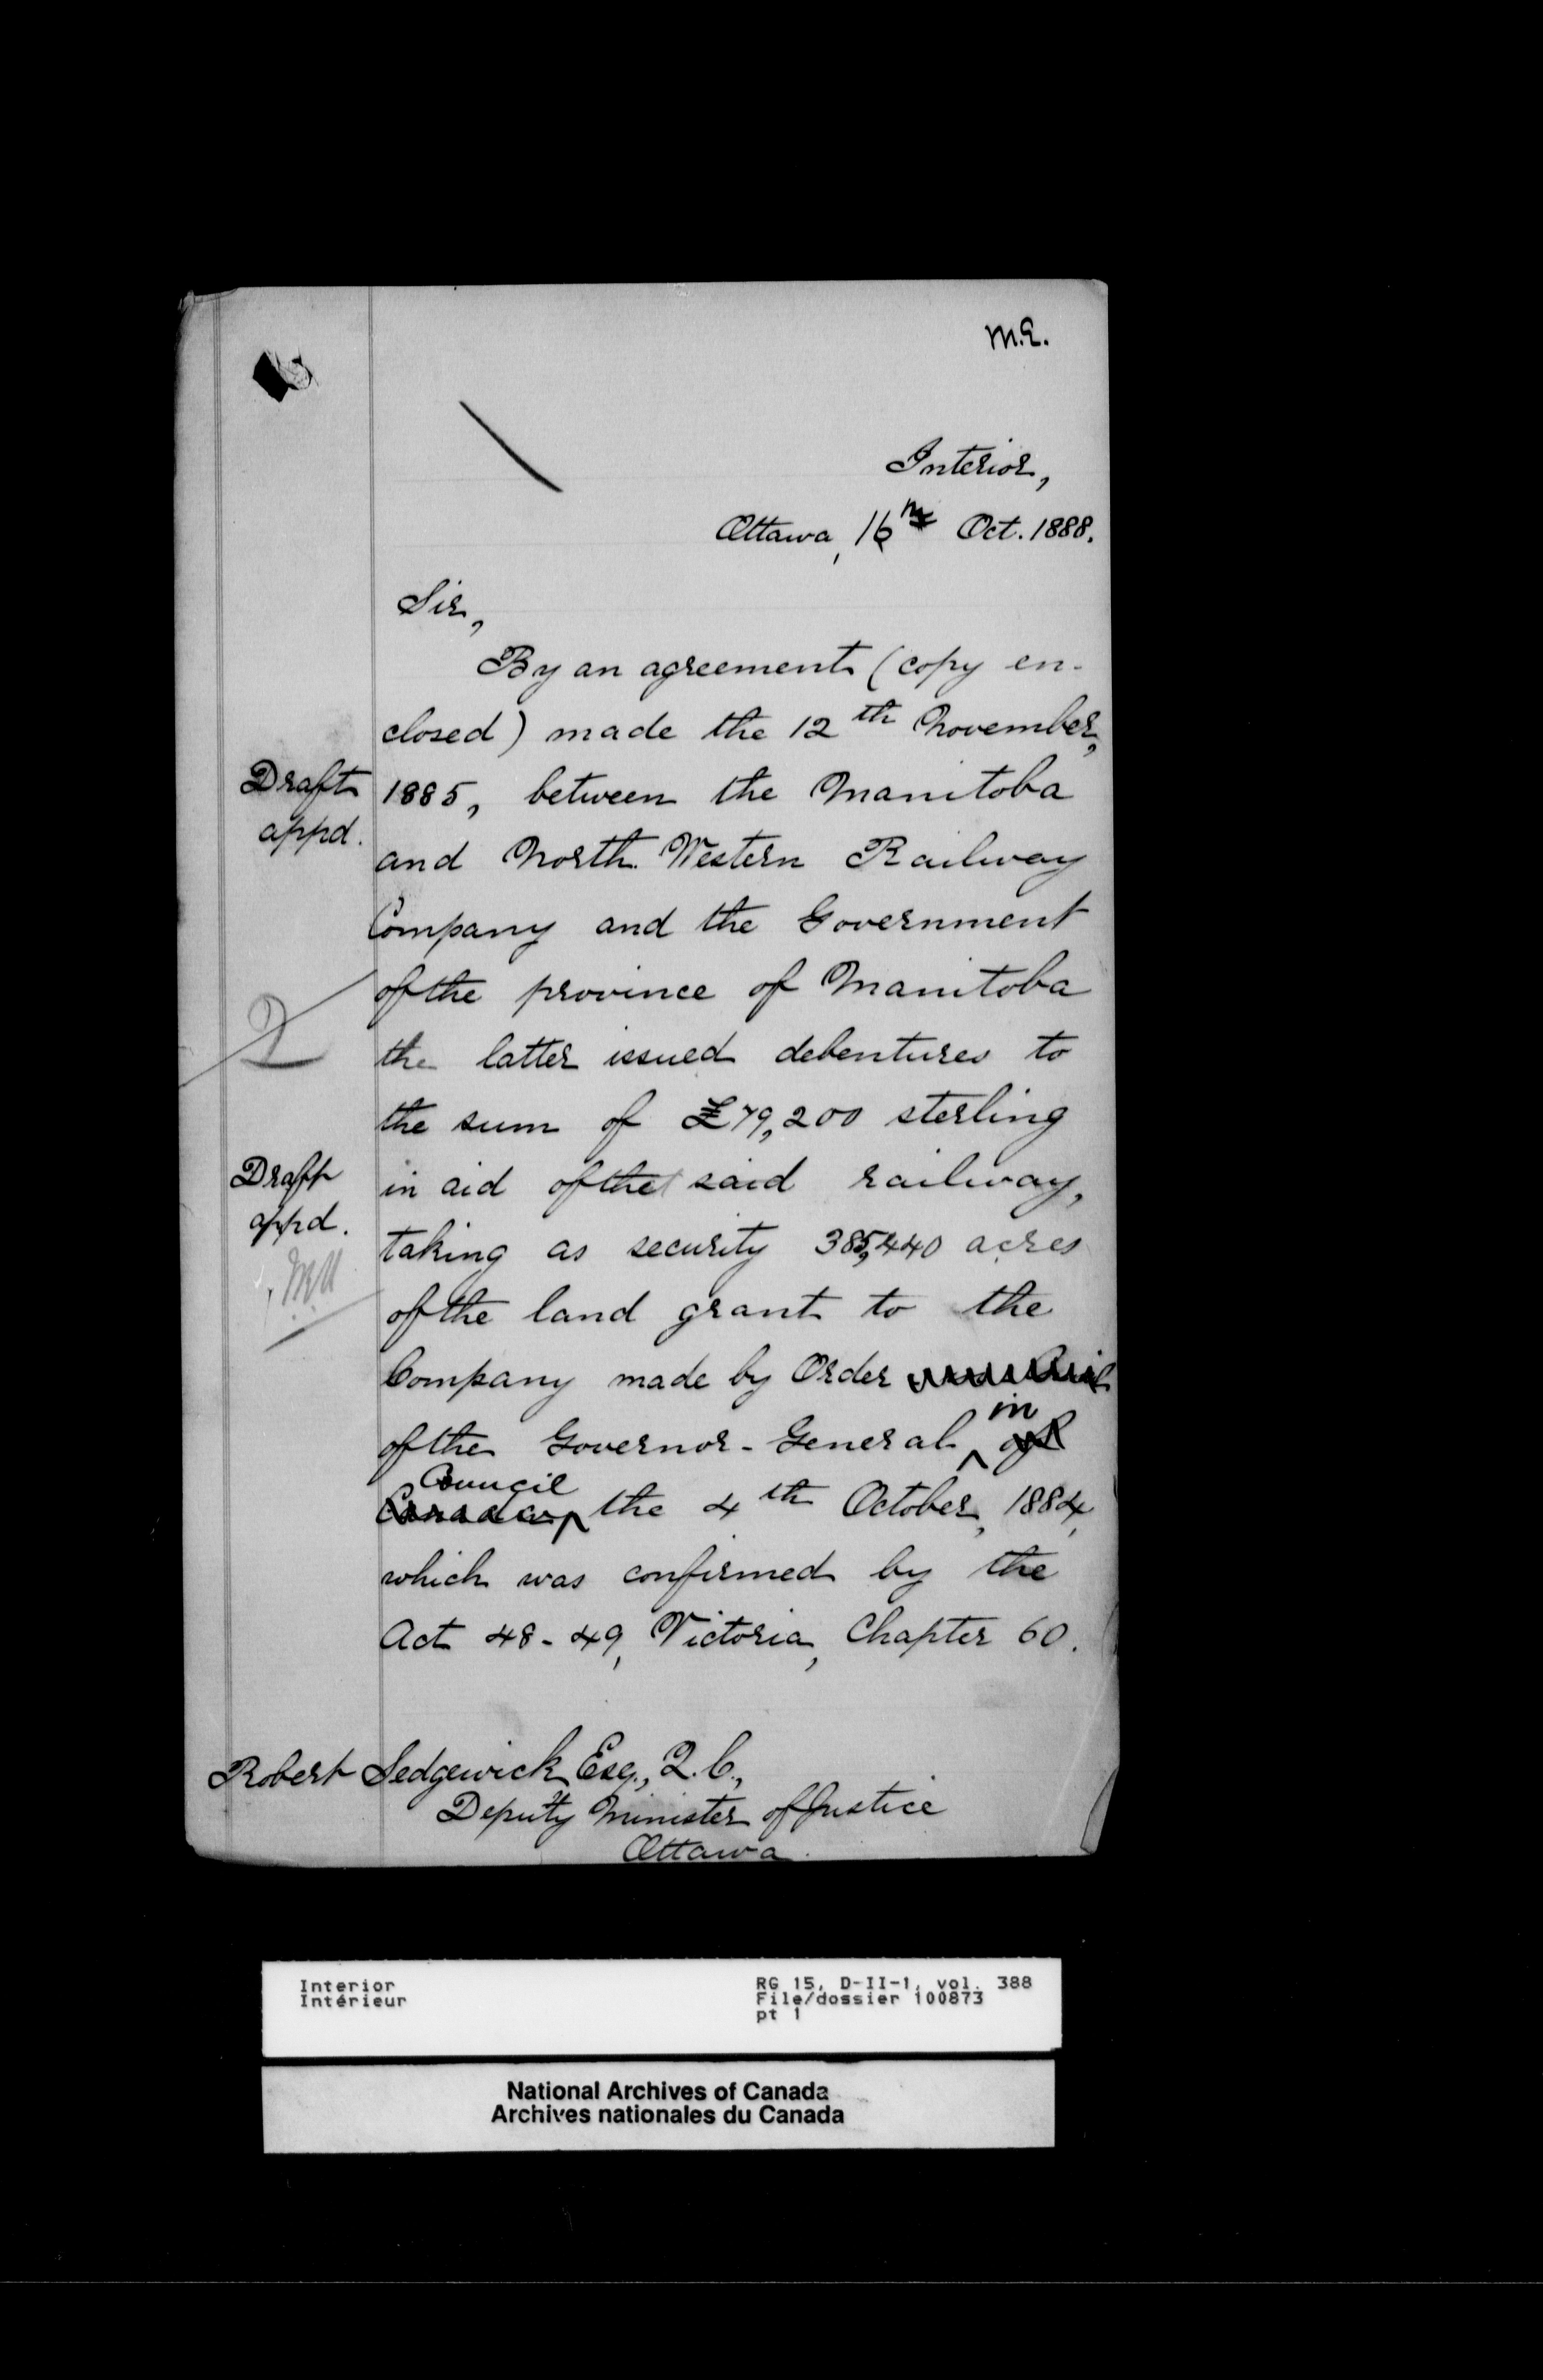 M.E.
Interior,
Ottawa, 16th Oct. 1888.
Sir,
By an agreement (copy en-
closed) made the 12th November,
Draft
appd.
1885, between the Manitoba
and North Western Railway
Company and the Government
of the province of Manitoba
2
the latter issued debentures to
the sum of £79,200 sterling
Draft
appd.
in aid of the said railway,
taking as security 385,440 acres
of the land grant to the
Company made by Order
of the Governor-General in of
Canada Council the 4th October, 1884,
which was confirmed by the
Act 48-49, Victoria, Chapter 60.
Robert Sedgewick Esq., Q.C.,
Deputy Minister of Justice
Ottawa.
Interior
Intérieur
RG 15, D-II-1, vol. 388
File/dossier 100873
pt 1
National Archives of Canada
Archives nationales du Canada